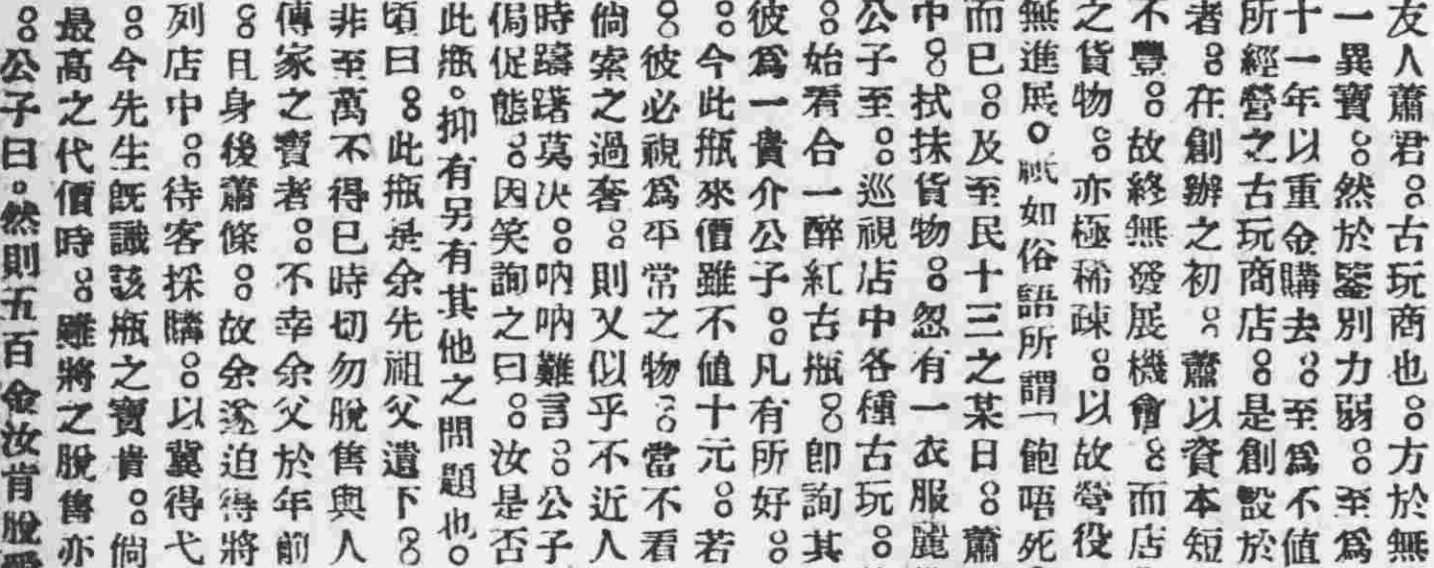 友人蕭君。古玩商也。方於無
一異寶。然於鑒別力弱。至爲
十一年以重金購去。至爲不值
所經營之古玩商店。是創設於
者。在創辦之初。蕭以資本短
不豐。故終無發展機會。而店
之貨物。亦極稀疎。以故營役
無進展。祇如俗語所謂「飽唔死
而已。及至民十三之某日。蕭
中。拭抹貨物。忽有一衣服麗
公子至。巡視店中各種古玩。
。始看合一醉紅古瓶。卽詢其
彼爲一貴介公子。凡有所好。
。今此瓶來價雖不值十元。若
。彼必視爲平常之物。當不看
倘索之過奢。則又似乎不近人
時躊躇莫决。吶吶難言。公子
侷促態。因笑詢之曰。汝是否
此瓶。抑有另有其他之問題也。
頃曰。此瓶是余先祖父遺下。
非至萬不得已時切勿脫售與人
傳家之寶者。不幸余父於年前
。且身後蕭條。故余遂迫得將
列店中。待客採購。以冀得弋
。今先生旣識該瓶之寶貴。倘
最高之代價時。雖將之脫售亦
。公子曰。然則五百金汝肯脫